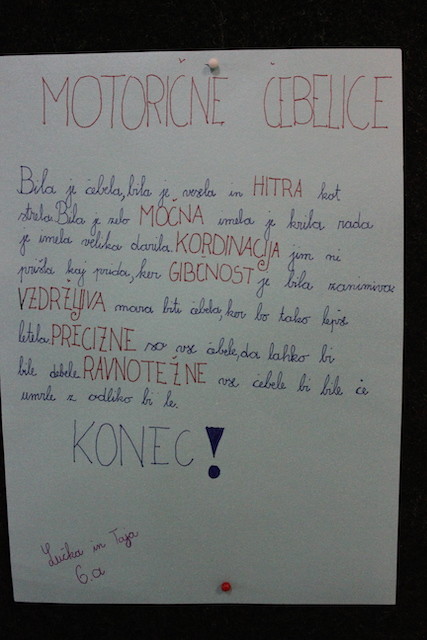 MOTORIČNE ČEBELICE
Bila je čebela, bila je vesela in HITRA kot
strela. Bila je zelo MOČNA imela je krila rada
je imela velika darila. KORDINACIJA jim ni
prišla kaj prida, ker GIBČNOST je bila zanimiva.
VZDRŽLJIVA mora biti čebela, ker bo tako lepše
letela. PRECIZNE so vse čebele, da lahko bi
bile debele. RAVNOTEŽNE vse čebele bi bile če
umrle z odliko bi le.
KONEC!
Lučka in Taja
6.a